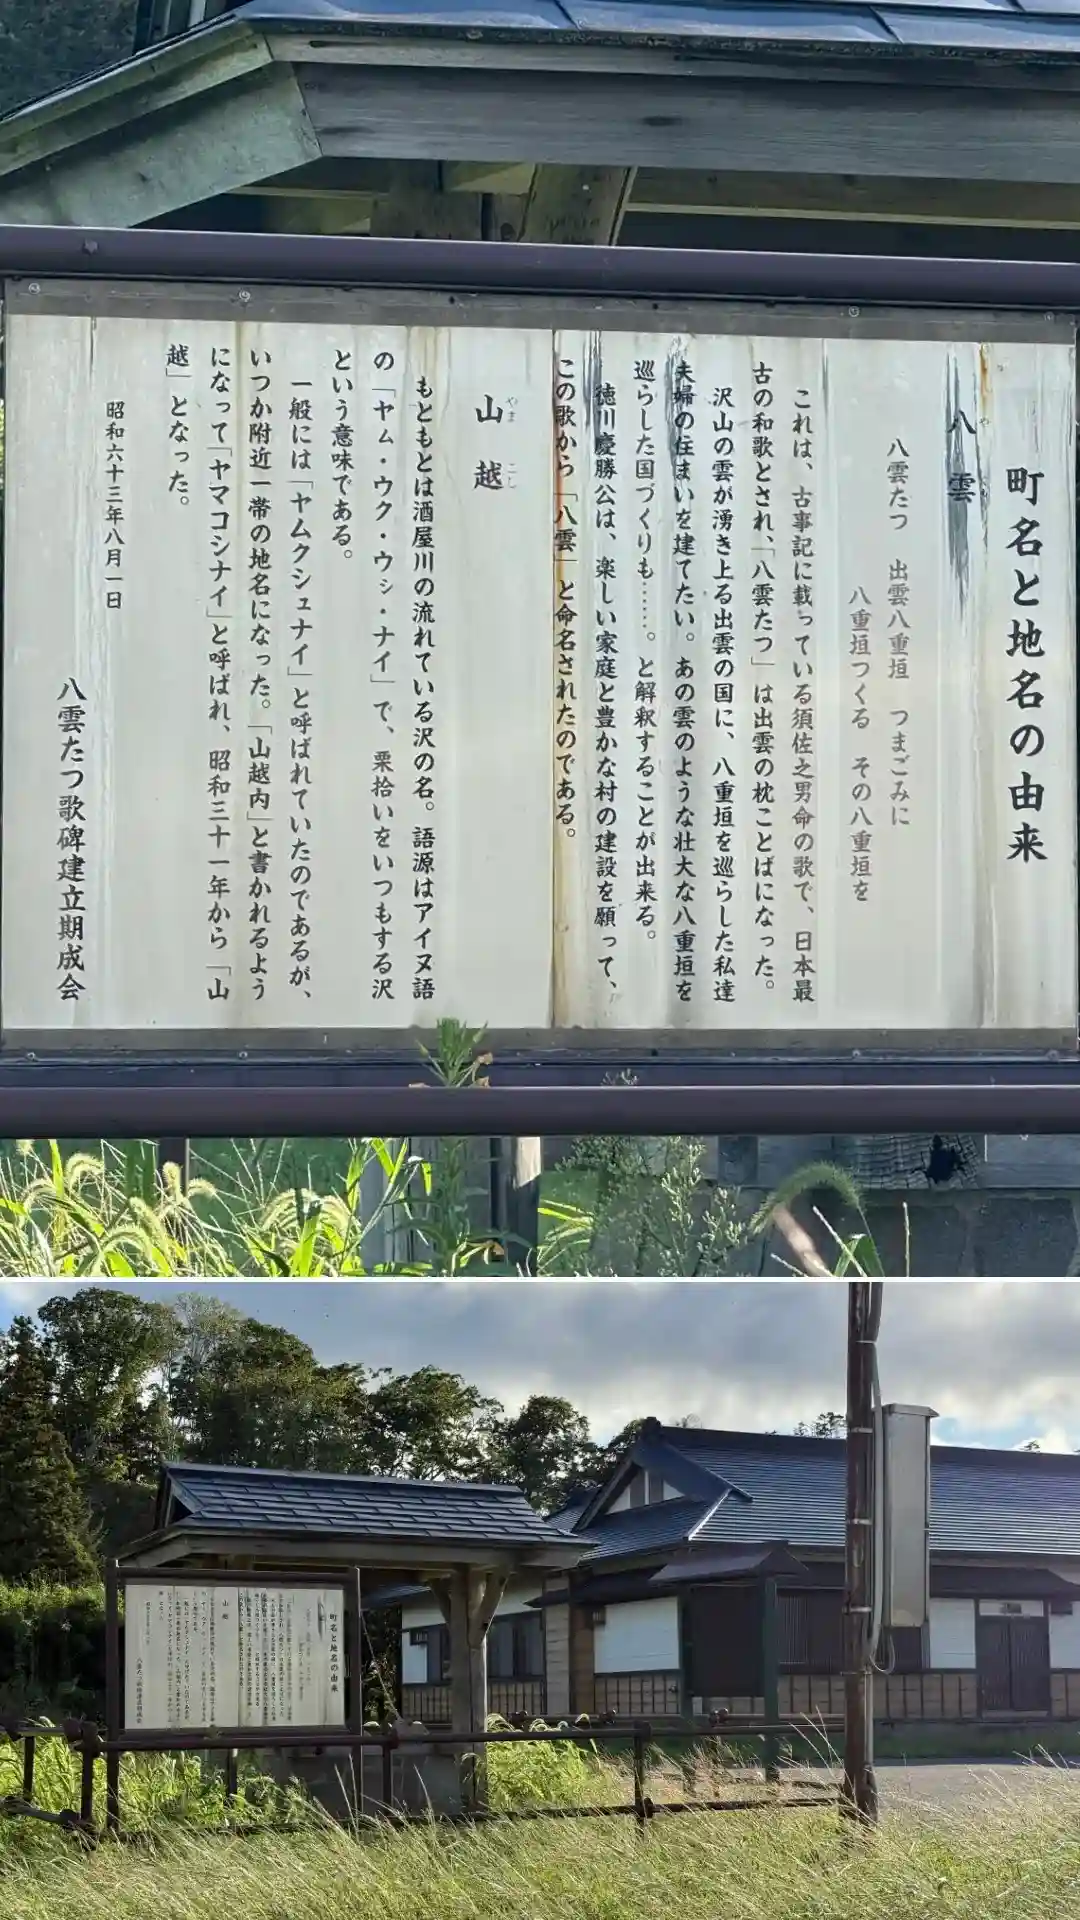 町名と地名の由来
八雲
八雲たつ 出雲八重垣 つまごみに
八重垣つくる その八重垣を
これは、古事記に載っている須佐之男命の歌で、日本最
古の和歌とされ、「八雲たつ」は出雲の枕ことばになった。
沢山の雲が湧き上る出雲の国に、八重垣を巡らした私達
夫婦の住まいを建てたい。あの雲のような壮大な八重垣を
巡らした国づくりも……。と解釈することが出来る。
徳川慶勝公は、楽しい家庭と豊かな村の建設を願って、
この歌から「八雲」と命名されたのである。
山越
やまこし
もともとは酒屋川の流れている沢の名。語源はアイヌ語
の「ヤム・ウク・ウㇱ・ナイ」で、栗拾いをいつもする沢
という意味である。
一般には「ヤムクシュナイ」と呼ばれていたのであるが、
いつか附近一帯の地名になった。「山越内」と書かれるよう
になって「ヤマコシナイ」と呼ばれ、昭和三十一年から「山
越」となった。
昭和六十三年八月一日
八雲たつ歌碑建立期成会
町名と地名の由来
山越
八雲たつ歌碑建立期成会